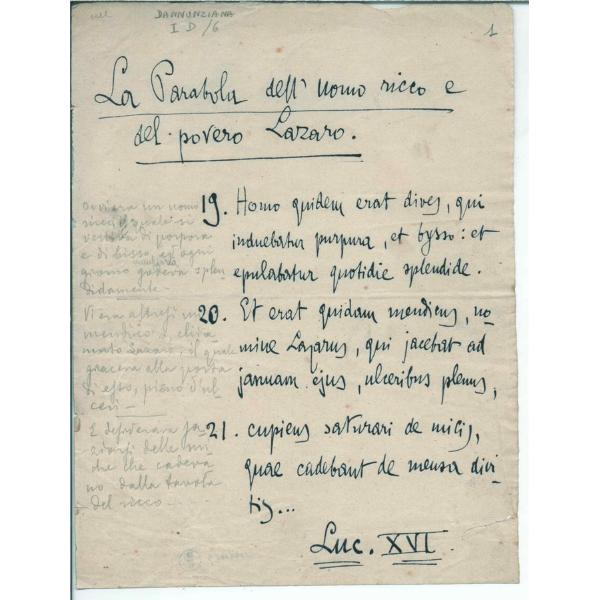 DANNUNZIANA
I D/6
1
La Parabola dell'Uomo ricco e
del povero Lazaro.
19. Homo quidem erat dives, qui
induebatur purpura, et bysso: et
epulabatur quotidie splendide.
20. Et erat quidam mendicus, no-
mine Lazarus, qui jacebat ad
januam ejus, ulceribus plenus,
21. cupiens saturari de micis,
quae cadebant de mensa divi-
tis...
Luc. XVI.
Ovviera un uomo
ricco, quale si
vestiva di porpora
e di bisso, ed ogni
giorno godeva splen
didamente.
Vi era altresì un
mendico, chia-
mato Lazaro, il quale
giaceva alla porta
di esso, pieno d'ul-
ceri -
E desiderava sa-
ziarsi delle mi-
che che cadeva
no dalla tavola
del ricco...